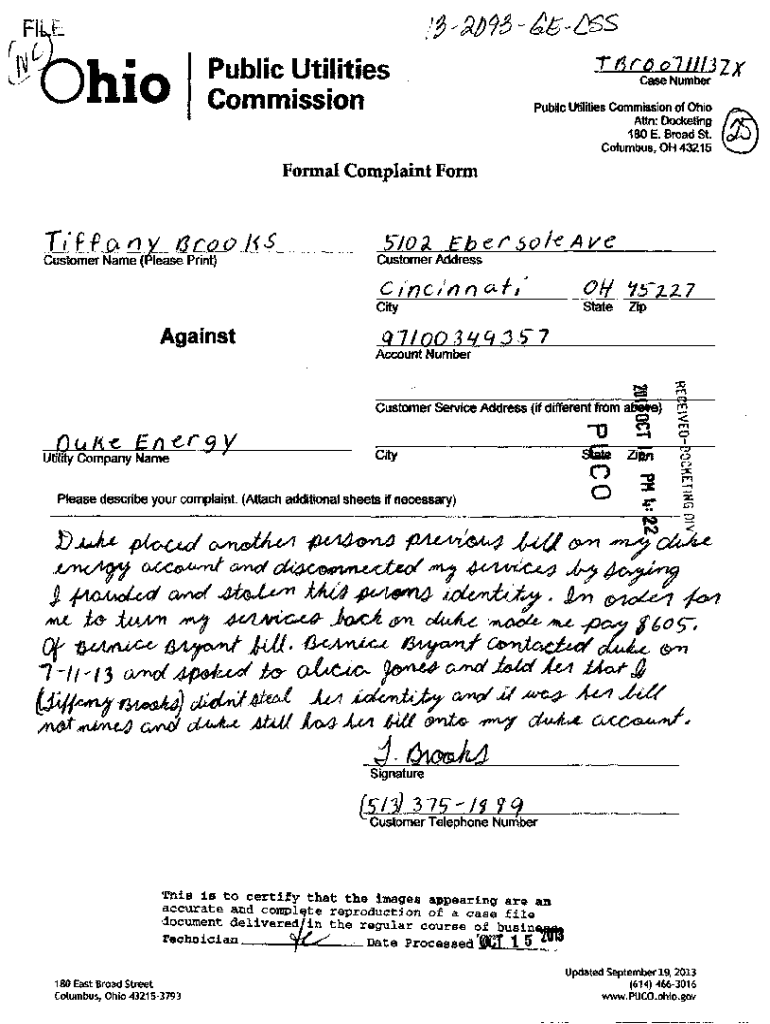 FILE
13-2093-GE-CSS
(NC)
Ohio | Public Utilities Commission
TBro0711137X
Case Number
Public Utilities Commission of Ohio
Attn: Docketing
180 E. Broad St.
Columbus, OH 43215
25
Formal Complaint Form
Tiffany Brooks
Customer Name (Please Print)
5102 Ebersole Ave
Customer Address
Cincinnati OH 45227
City State Zip
Against
97100349357
Account Number
Customer Service Address (if different from above)
Duke Energy
Utility Company Name
City State Zip
RECEIVED-DOCKETING DIV
2013 OCT 15 PM 4:22
PUCO
Please describe your complaint. (Attach additional sheets if necessary)
Duke placed another persons previous bill on my duke
energy account and disconnected my services by saying
I frauded and stolen this persons identity. In order for
me to turn my services back on duke made me pay $605.
Of Bernice Bryant bill. Bernice Bryant contacted duke on
7-11-13 and spoked to alicia Jones and told her that I
(Tiffany Brooks) didn't steal her identity and it was her bill
not mines and duke still has her bill onto my duke account.
T. Brooks
Signature
(513) 375-1889
Customer Telephone Number
This is to certify that the images appearing are an
accurate and complete reproduction of a case file
document delivered in the regular course of business
Technician Date Processed OCT 15 2013
Updated September 19, 2013
180 East Broad Street
(614) 466-3016
Columbus, Ohio 43215-3793
www.PUCO.ohio.gov